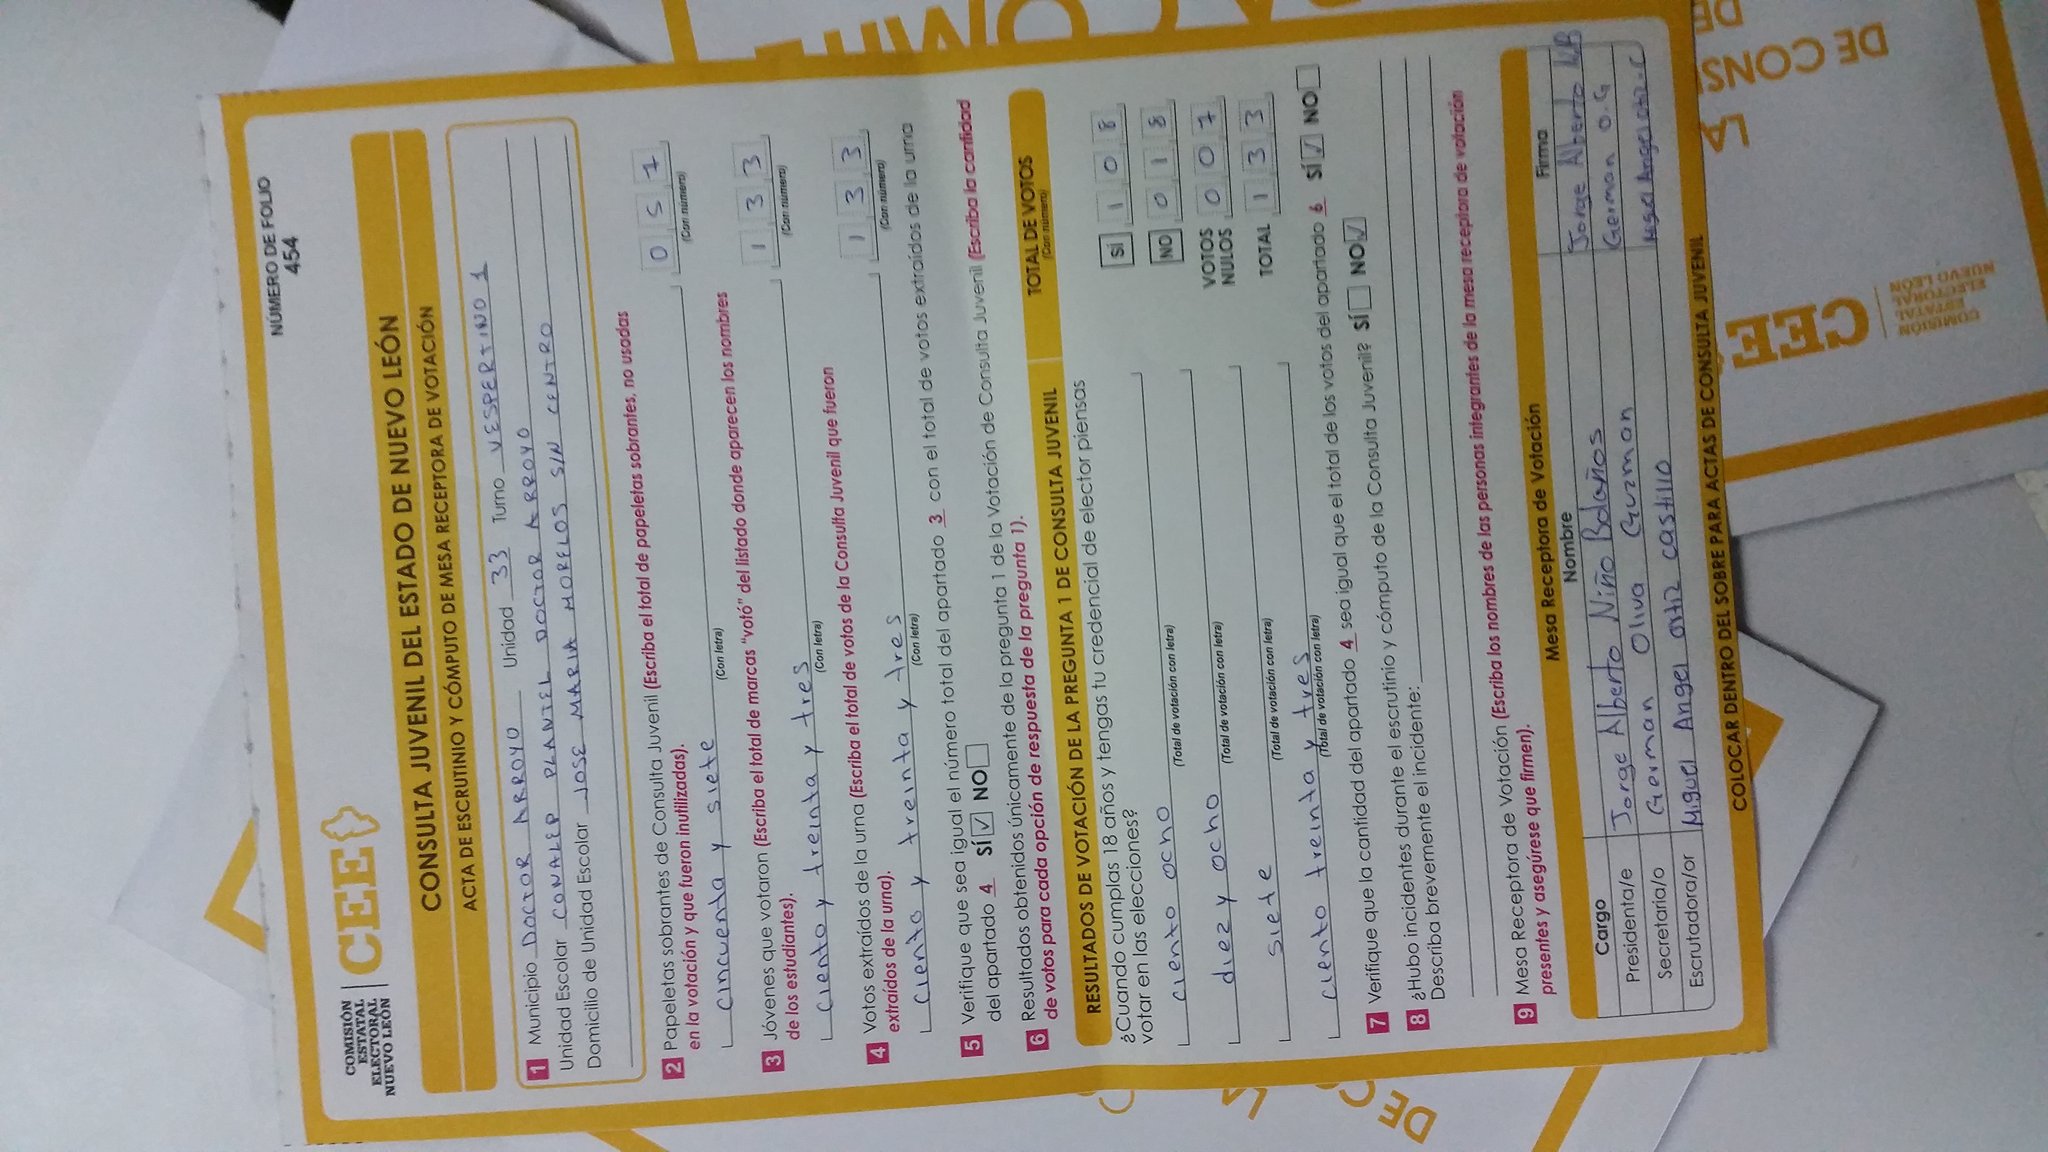 NÚMERO DE FOLIO
454
COMISIÓN
ESTATAL
ELECTORAL
NUEVO LEÓN
CEE
CONSULTA JUVENIL DEL ESTADO DE NUEVO LEÓN
ACTA DE ESCRUTINIO Y CÓMPUTO DE MESA RECEPTORA DE VOTACIÓN
1 Municipio DOCTOR ARROYO Unidad 33 Turno VESPERTINO 1
Unidad Escolar CONALEP PLANTEL DOCTOR ARROYO
Domicilio de Unidad Escolar JOSE MARIA MORELOS SIN CENTRO
2 Papeletas sobrantes de Consulta Juvenil (Escriba el total de papeletas sobrantes, no usadas
en la votación y que fueron inutilizadas).
cincuenta y siete 0 5 7
(Con letra) (Con número)
3 Jóvenes que votaron (Escriba el total de marcas "votó" del listado donde aparecen los nombres
de los estudiantes).
ciento y treinta y tres 1 3 3
(Con letra) (Con número)
4 Votos extraídos de la urna (Escriba el total de votos de la Consulta Juvenil que fueron
extraídos de la urna).
ciento y treinta y tres 1 3 3
(Con letra) (Con número)
5 Verifique que sea igual el número total del apartado 3 con el total de votos extraídos de la urna
del apartado 4 SÍ ✓ NO
6 Resultados obtenidos únicamente de la pregunta 1 de la Votación de Consulta Juvenil (Escriba la cantidad
de votos para cada opción de respuesta de la pregunta 1).
RESULTADOS DE VOTACIÓN DE LA PREGUNTA 1 DE CONSULTA JUVENIL TOTAL DE VOTOS
(Con número)
¿Cuando cumplas 18 años y tengas tu credencial de elector piensas
votar en las elecciones?
ciento ocho SÍ 1 0 8
(Total de votación con letra)
diez y ocho NO 0 1 8
(Total de votación con letra)
siete VOTOS NULOS 0 0 7
(Total de votación con letra)
ciento treinta y tres TOTAL 1 3 3
(Total de votación con letra)
7 Verifique que la cantidad del apartado 4 sea igual que el total de los votos del apartado 6 SÍ ✓ NO
8 ¿Hubo incidentes durante el escrutinio y cómputo de la Consulta Juvenil? SÍ NO ✓
Describa brevemente el incidente:
9 Mesa Receptora de Votación (Escriba los nombres de las personas integrantes de la mesa receptora de votación
presentes y asegúrese que firmen).
Mesa Receptora de Votación
Cargo Nombre Firma
Presidenta/e Jorge Alberto Niño Bolaños Jorge Alberto
Secretaria/o German Oliva Guzman German O.G
Escrutadora/or Miguel Angel ortiz castillo Miguel Angel ortiz.C
COLOCAR DENTRO DEL SOBRE PARA ACTAS DE CONSULTA JUVENIL
DE CONS
CEE
COMISIÓN
ESTATAL
ELECTORAL
NUEVO LEÓN